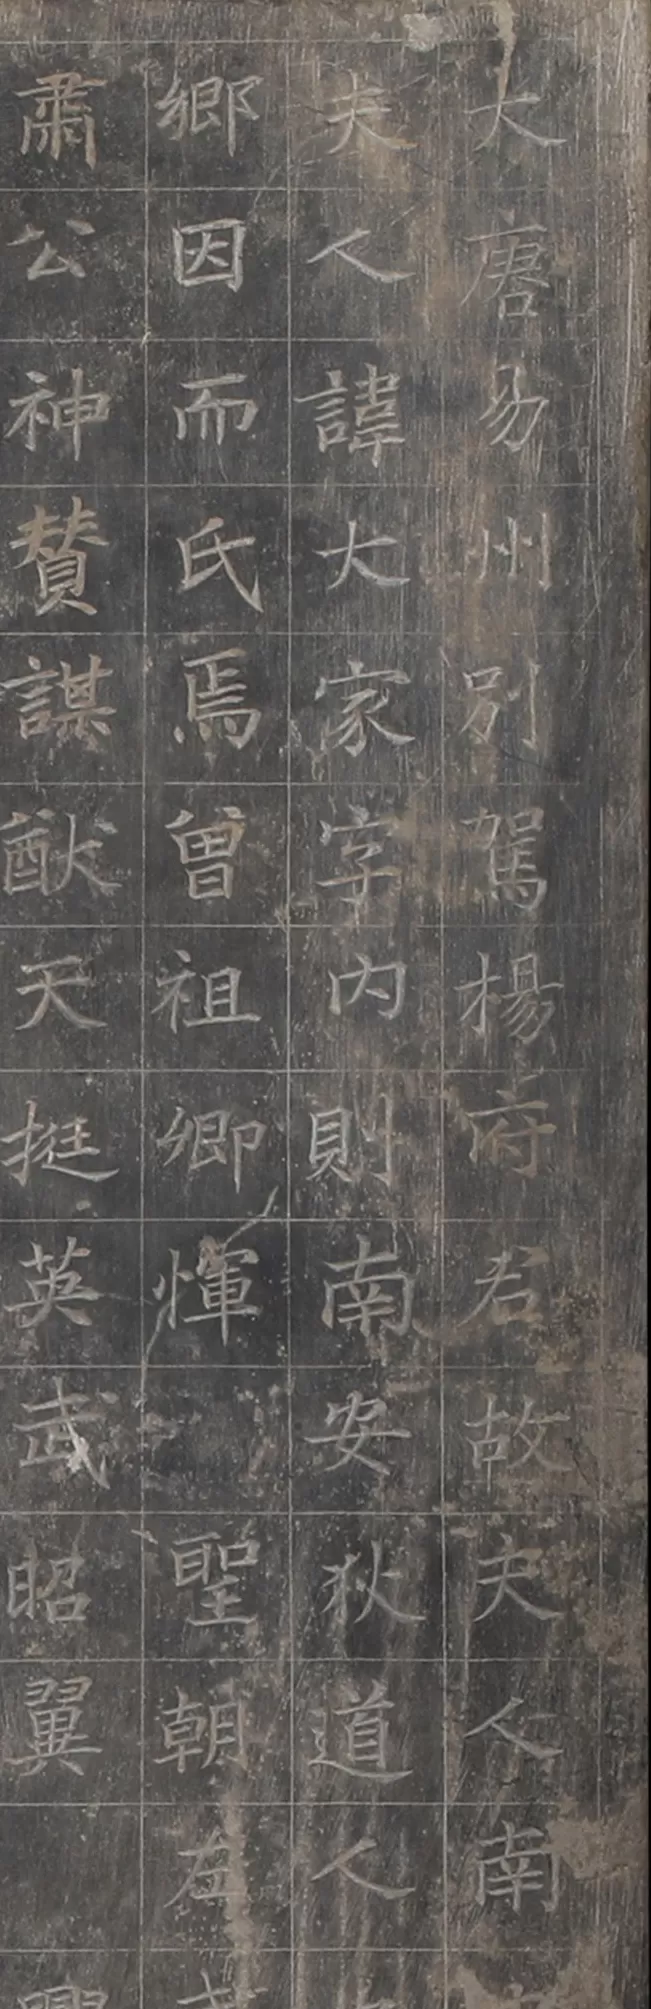 大唐易州别駕楊府君故夫人南
夫人諱大家字内則南安狄道人
鄉因而氏焉曾祖卿惲聖朝左
肅公神贊謀猷天挺英武昭翼